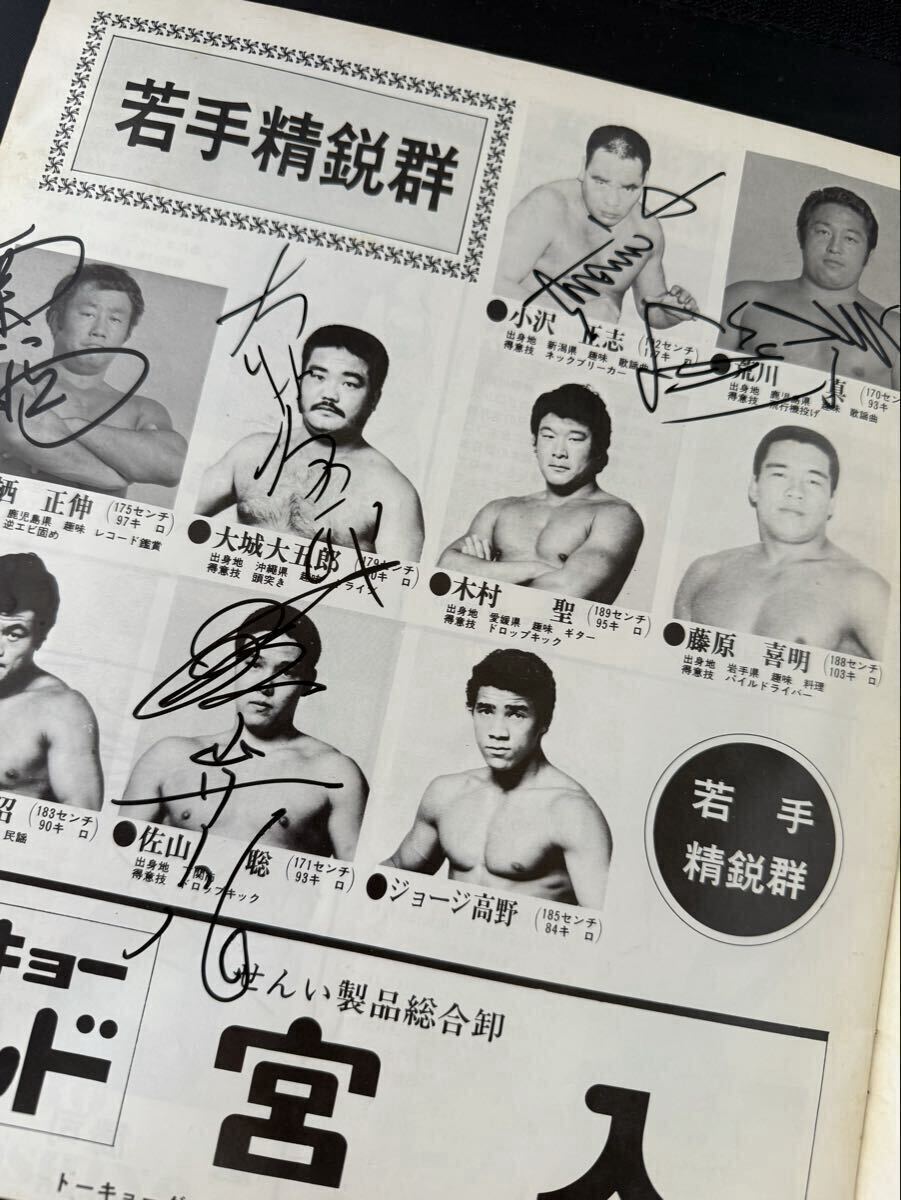 若手精鋭群
●小沢 正志
出身地 新潟県 趣味 歌謡曲
得意技 ネックブリーカー
荒川 真
出身地 鹿児島県 趣味 歌謡曲
170セン
93キ
栖 正伸 (175センチ 97キロ)
鹿児島県 趣味 レコード鑑賞
逆エビ固め
●大城大五郎
出身地 沖縄県
得意技 頭突き
●木村 聖 (189センチ 95キロ)
出身地 愛媛県 趣味 ギター
得意技 ドロップキック
●藤原 喜明 (188センチ 103キロ)
出身地 岩手県 趣味 料理
得意技 パイルドライバー
(183センチ 90キロ)
民謡
●佐山 聡 (171センチ 93キロ)
出身地
得意技 ドロップキック
●ジョージ高野 (185センチ 84キロ)
若手
精鋭群
キョー
ンド
せんい製品総合卸
宮入